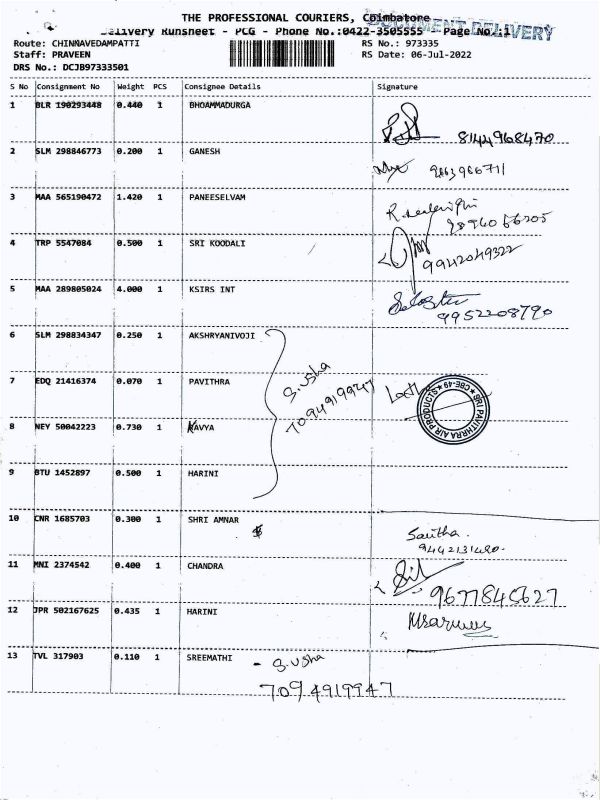 THE PROFESSIONAL COURIERS, Coimbatore
DOCUMENT DELIVERY
Delivery Runsheet - PCG - Phone No.:0422-3505555 - Page No.:1
Route: CHINNAVEDAMPATTI RS No.: 973335
Staff: PRAVEEN RS Date: 06-Jul-2022
DRS No.: DCJB97333501
S No Consignment No Weight PCS Consignee Details Signature
1 BLR 190293448 0.440 1 BHOAMMADURGA
8144968470
2 SLM 298846773 0.200 1 GANESH
9863966711
3 MAA 565190472 1.420 1 PANEESELVAM
9894056205
4 TRP 5547084 0.500 1 SRI KOODALI
9942049322
5 MAA 289805024 4.000 1 KSIRS INT
9952208790
6 SLM 298834347 0.250 1 AKSHRYANIVOJI
S.Usha
7094919947
7 EDQ 21416374 0.070 1 PAVITHRA
SRI PAVITHRRA AIR PRODUCTS CBE-49
8 NEY 50042223 0.730 1 KAVYA
9 BTU 1452897 0.500 1 HARINI
10 CNR 1685703 0.300 1 SHRI AMNAR
Saritha.
9442131480.
11 MNI 2374542 0.400 1 CHANDRA
9677845627
12 JPR 502167625 0.435 1 HARINI
13 TVL 317903 0.110 1 SREEMATHI - S.Usha
7094919947